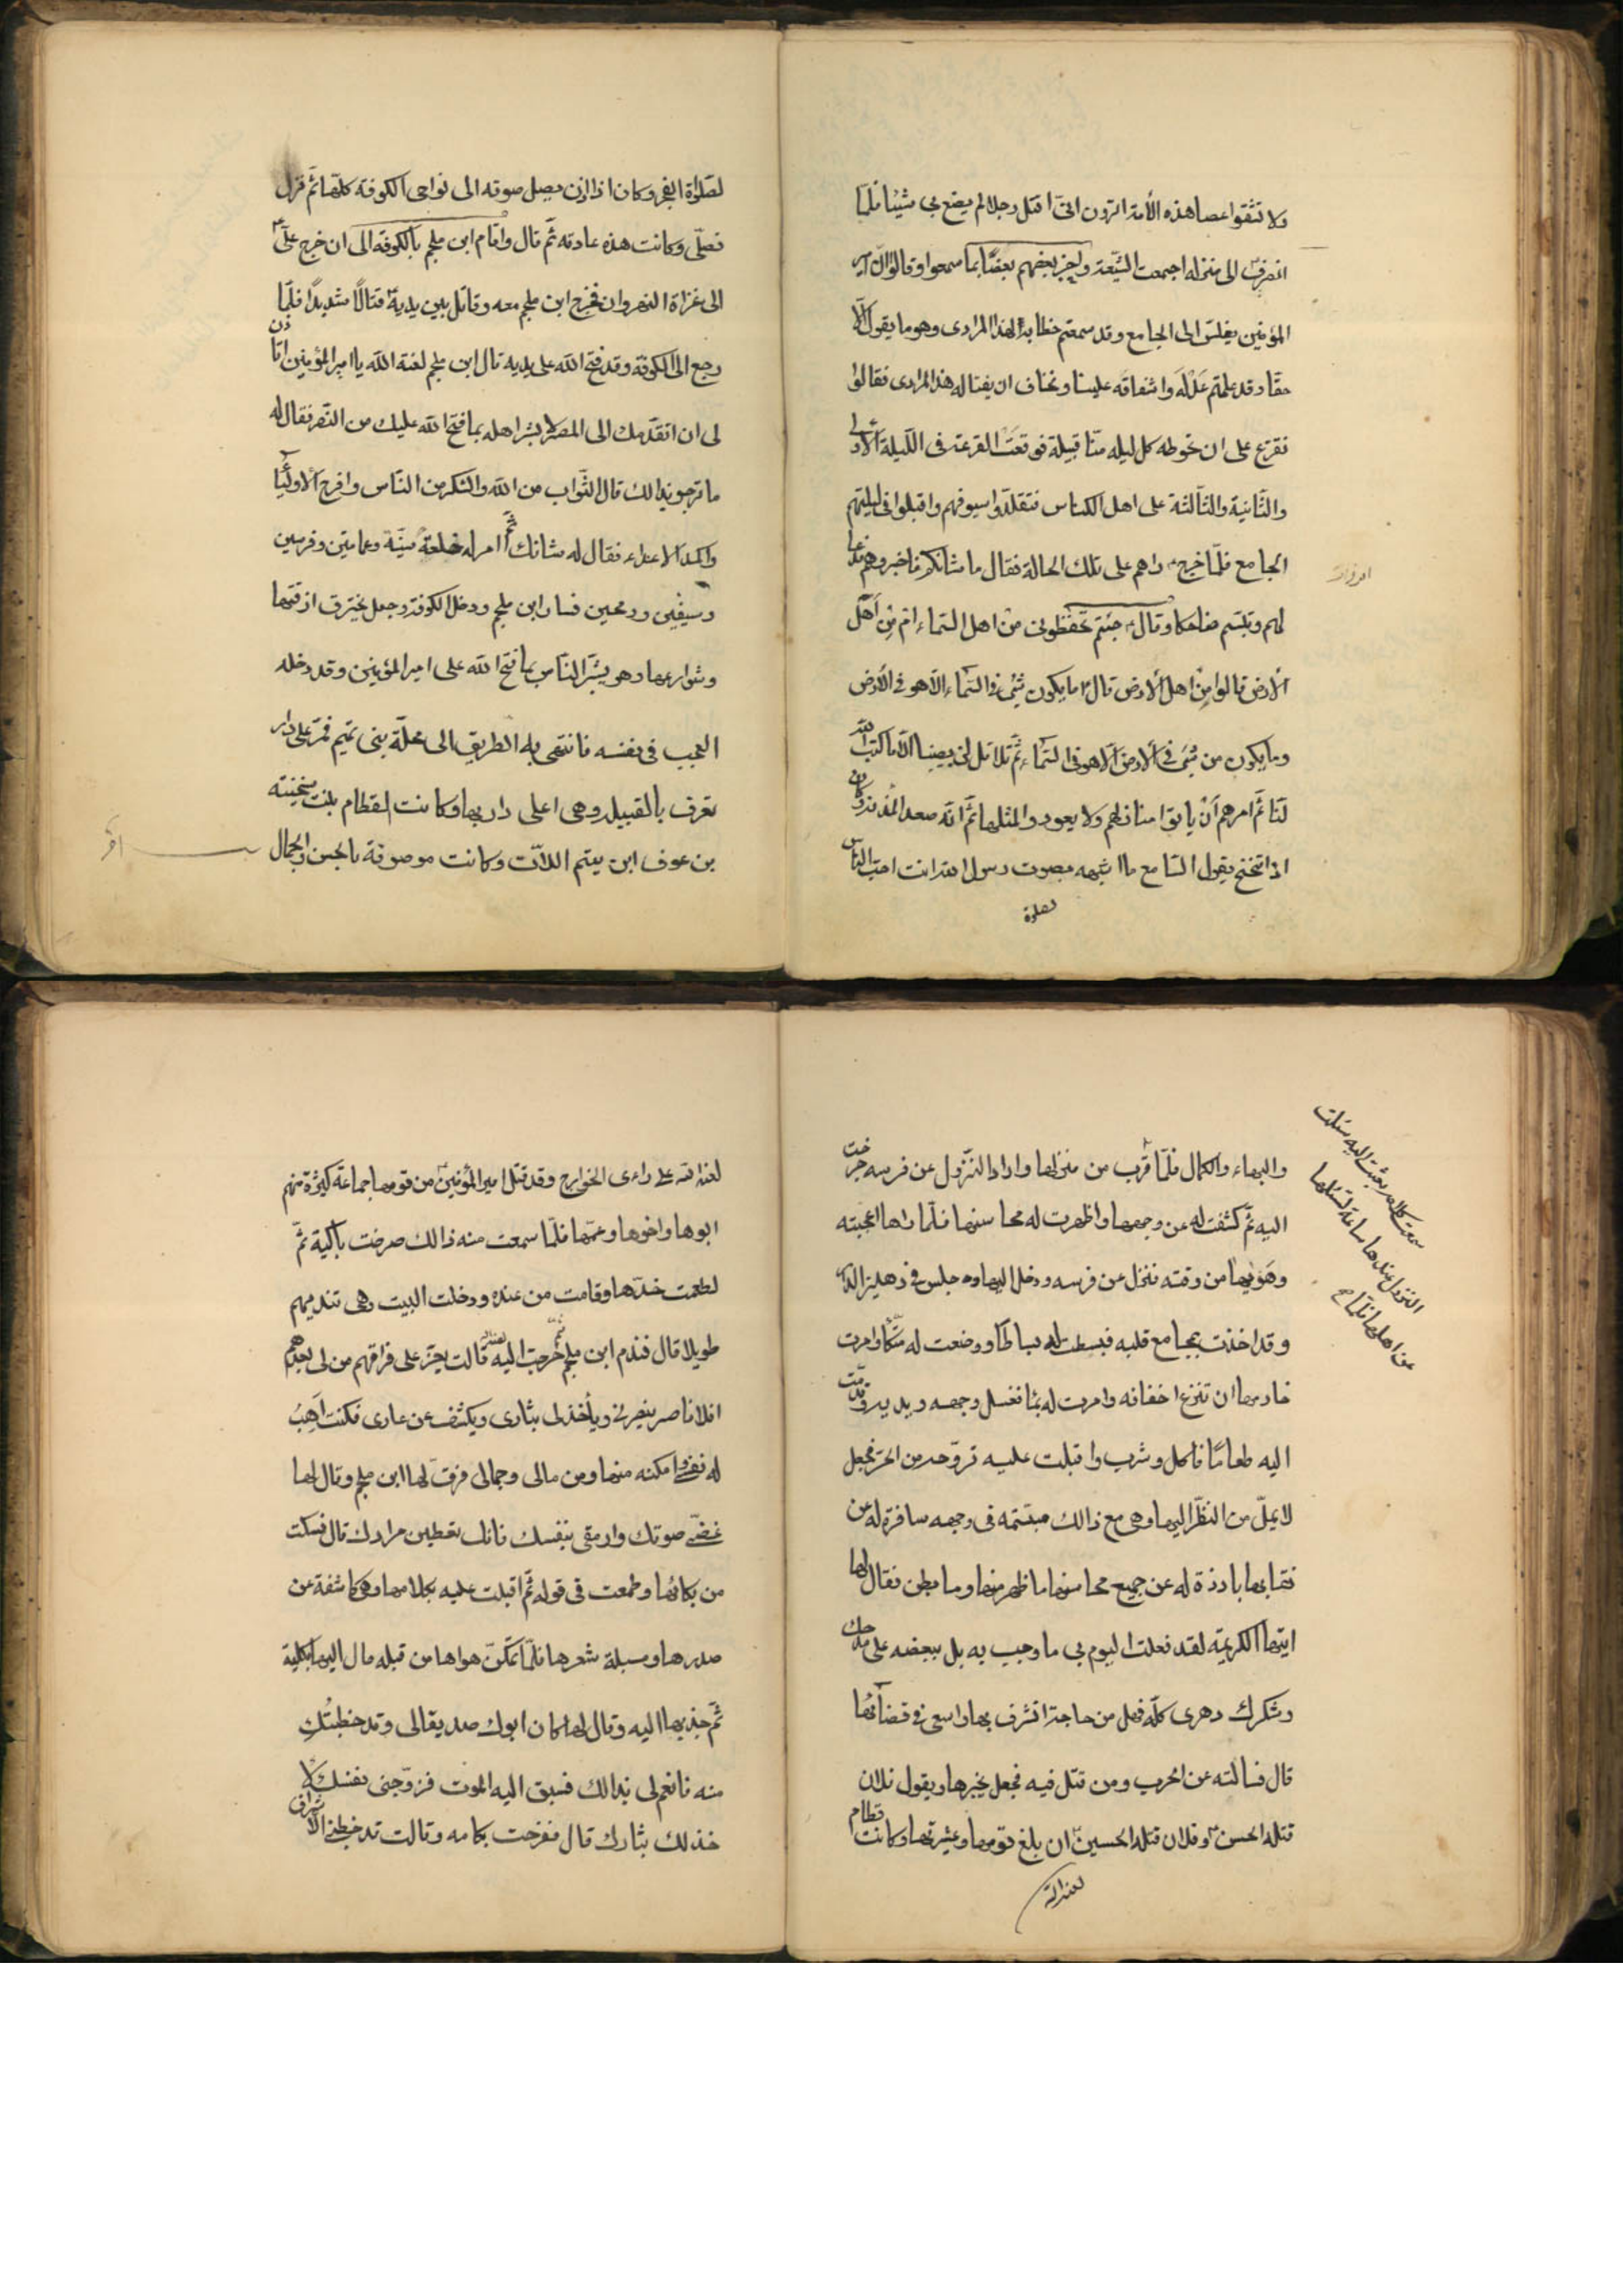 ولا تثقوا عصا هذه الأمة اترون انّى اقتل رجلا لم يصنع بى شيئا فلمّا
انصرف الى منزله اجتمعت الشيّعة واخبر بعضهم بعضًا بما سمعوا وقالوا انّ امير
المؤمنين يغلس الى الجامع وقد سمعتم خطابه لهذا المرادى وهو ما يقول الّا
حقّا وقد علمتم عدله واشفاقه علينا ونخاف ان يغتاله هذا المرادى فقالوا
نقترع على ان نحوطه كل ليله منّا قبيلة فوقعت القرعة فى اللّيلة الأولى
والثّانية والثّالثة على اهل الكناس فتقلّدوا سيوفهم واقبلوا فى ليلتهم
الجامع فلمّا خرج راهم على تلك الحالة فقال ما شانكم فاخبروه فدعا
لهم وتبسّم ضاحكا وقال جئتم تحفظونى من اهل السّماء ام من اهل
الارض قالوا من اهل الارض قال ما يكون شئ فى السّماء الّا هو فى الأرض
وما يكون من شئ فى الارض الّا هو فى السّماء ثمّ تلا قل لن يصيبنا الّا ما كتب الله
لنا ثمّ امرهم ان ياتوا منازلهم ولا يعودوا لمثلها ثمّ انّه صعد المأذنة وكان
اذا تنحنح يقول السّامع ما اشبهه بصوت رسول الله انت احبّ النّاس
لصلوة
لصّلوة الفجر وكان اذا اذن يصل صوته الى نواحى الكوفة كلّها ثمّ نزل
فصلّى وكانت هذه عادته ثمّ قال واقام ابن ملجم بالكوفة الى ان خرج علىّ
الى غزاة النهروان فخرج ابن ملجم معه وقاتل بين يديه قتالًا شديدًا فلمّا
رجع الى الكوفة وقد فتح الله على يديه قال ابن ملجم لعنة الله يا امير المؤمنين اتاذن
لى ان اتقدّمك الى المصر لابشر اهله بما فتح الله عليك من النّصر فقال له
ما ترجو بذالك قال الثّواب من الله والشكر من النّاس وافرح الاوليآ
واكمد الاعداء فقال له شانك ثمّ امر له بخلعة سنيّة وعمامتين وفرسين
وسيفين ورمحين فسار ابن ملجم ودخل الكوفة وجعل يخترق ازقّتها
وشوارعها وهو يبشّر النّاس بما فتح الله على امير المؤمنين وقد دخله
العجب فى نفسه فانتهى به الطريق الى محلّة بنى تميم فمرّ على دار
تعرف بالقبيلة وهى اعلى دار بها وكانت لقطام بنت سخينة
بن عوف ابن تيتم اللاّت وكانت موصوفة بالحسن والجمال
والبهاء والكمال فلمّا قرب من منزلها واراد النّزول عن فرسه خرجت
اليه ثمّ كشفت له عن وجهها واظهرت له محاسنها فلمّا راها اعجبته
وهَوِيَها من وقته فنزل عن فرسه ودخل اليها وجلس فى دهليز الدّار
وقد اخذت بمجامع قلبه فبسطت له بساطًا ووضعت له متّكأ وامرت
خادمها ان تنزع اخفافه وامرت له بماء فغسل وجهه ويديه وقدّمت
اليه طعامًا فاكل وشرب واقبلت عليه تروّحه من الحرّ فجعل
لا يملّ من النّظر اليها وهى مع ذالك مبتسّمة فى وجهه سافرة له عن
نقابها بارزة له عن جميع محاسنها ما ظهر منها وما بطن فقال لها
ايّتها الكريمة لقد فعلت اليوم بى ما وجب به بل ببعضه على مدحك
وشكرك دهرى كلّه فهل من حاجة اتشرف بها واسعى فى قضائها
قال فسالته عن الحرب ومن قتل فيه فجعل يخبرها ويقول فلان
قتله الحسن وفلان قتله الحسين ان بلغ قومها وعشيرتها وكانت قطام
لعنه الله
سمعت كلامه بعثت اليه سئلت
النزول عندها ساعة لتسئلها
عن اهلها فلمّا صح
لعنها الله على راءى الخوارج وقد قتل امير المؤمنين من قومها جماعة كثيرة منهم
ابوها واخوها وعمّها فلمّا سمعت منه ذالك صرخت باكية ثمّ
لطمت خدّها وقامت من عنده ودخلت البيت وهى تندبهم
طويلا قال فندم ابن ملجم ثمّ خرجت اليه لعنها الله قالت يعزّ على فراقهم من لى بعدهم
افلا ناصر ينصرنى ويأخذ لى بثارى ويكشف عن عارى فكنت اَهِبُ
له نفسى وامكنه منها ومن مالى وجمالى فرقّ لها ابن ملجم وقال لها
غضّى صوتك وارفقى بنفسك فانك تعطين مرادك قال فسكتت
من بكائها وطمعت فى قوله ثمّ اقبلت عليه بكلامها وهى كاشفة عن
صدرها ومسبلة شعرها فلمّا تمكّن هواها من قبله مال اليها بكليّة
ثمّ جذبها اليه وقال لها كان ابوك صديقا لى وقد خطبتُكِ
منه فانعم لى بذالك فسبق اليه الموت فزوّجنى نفسك لا
خذ لك بثارك قال ففرحت بكلامه وقالت قد خطبنى الأشراف